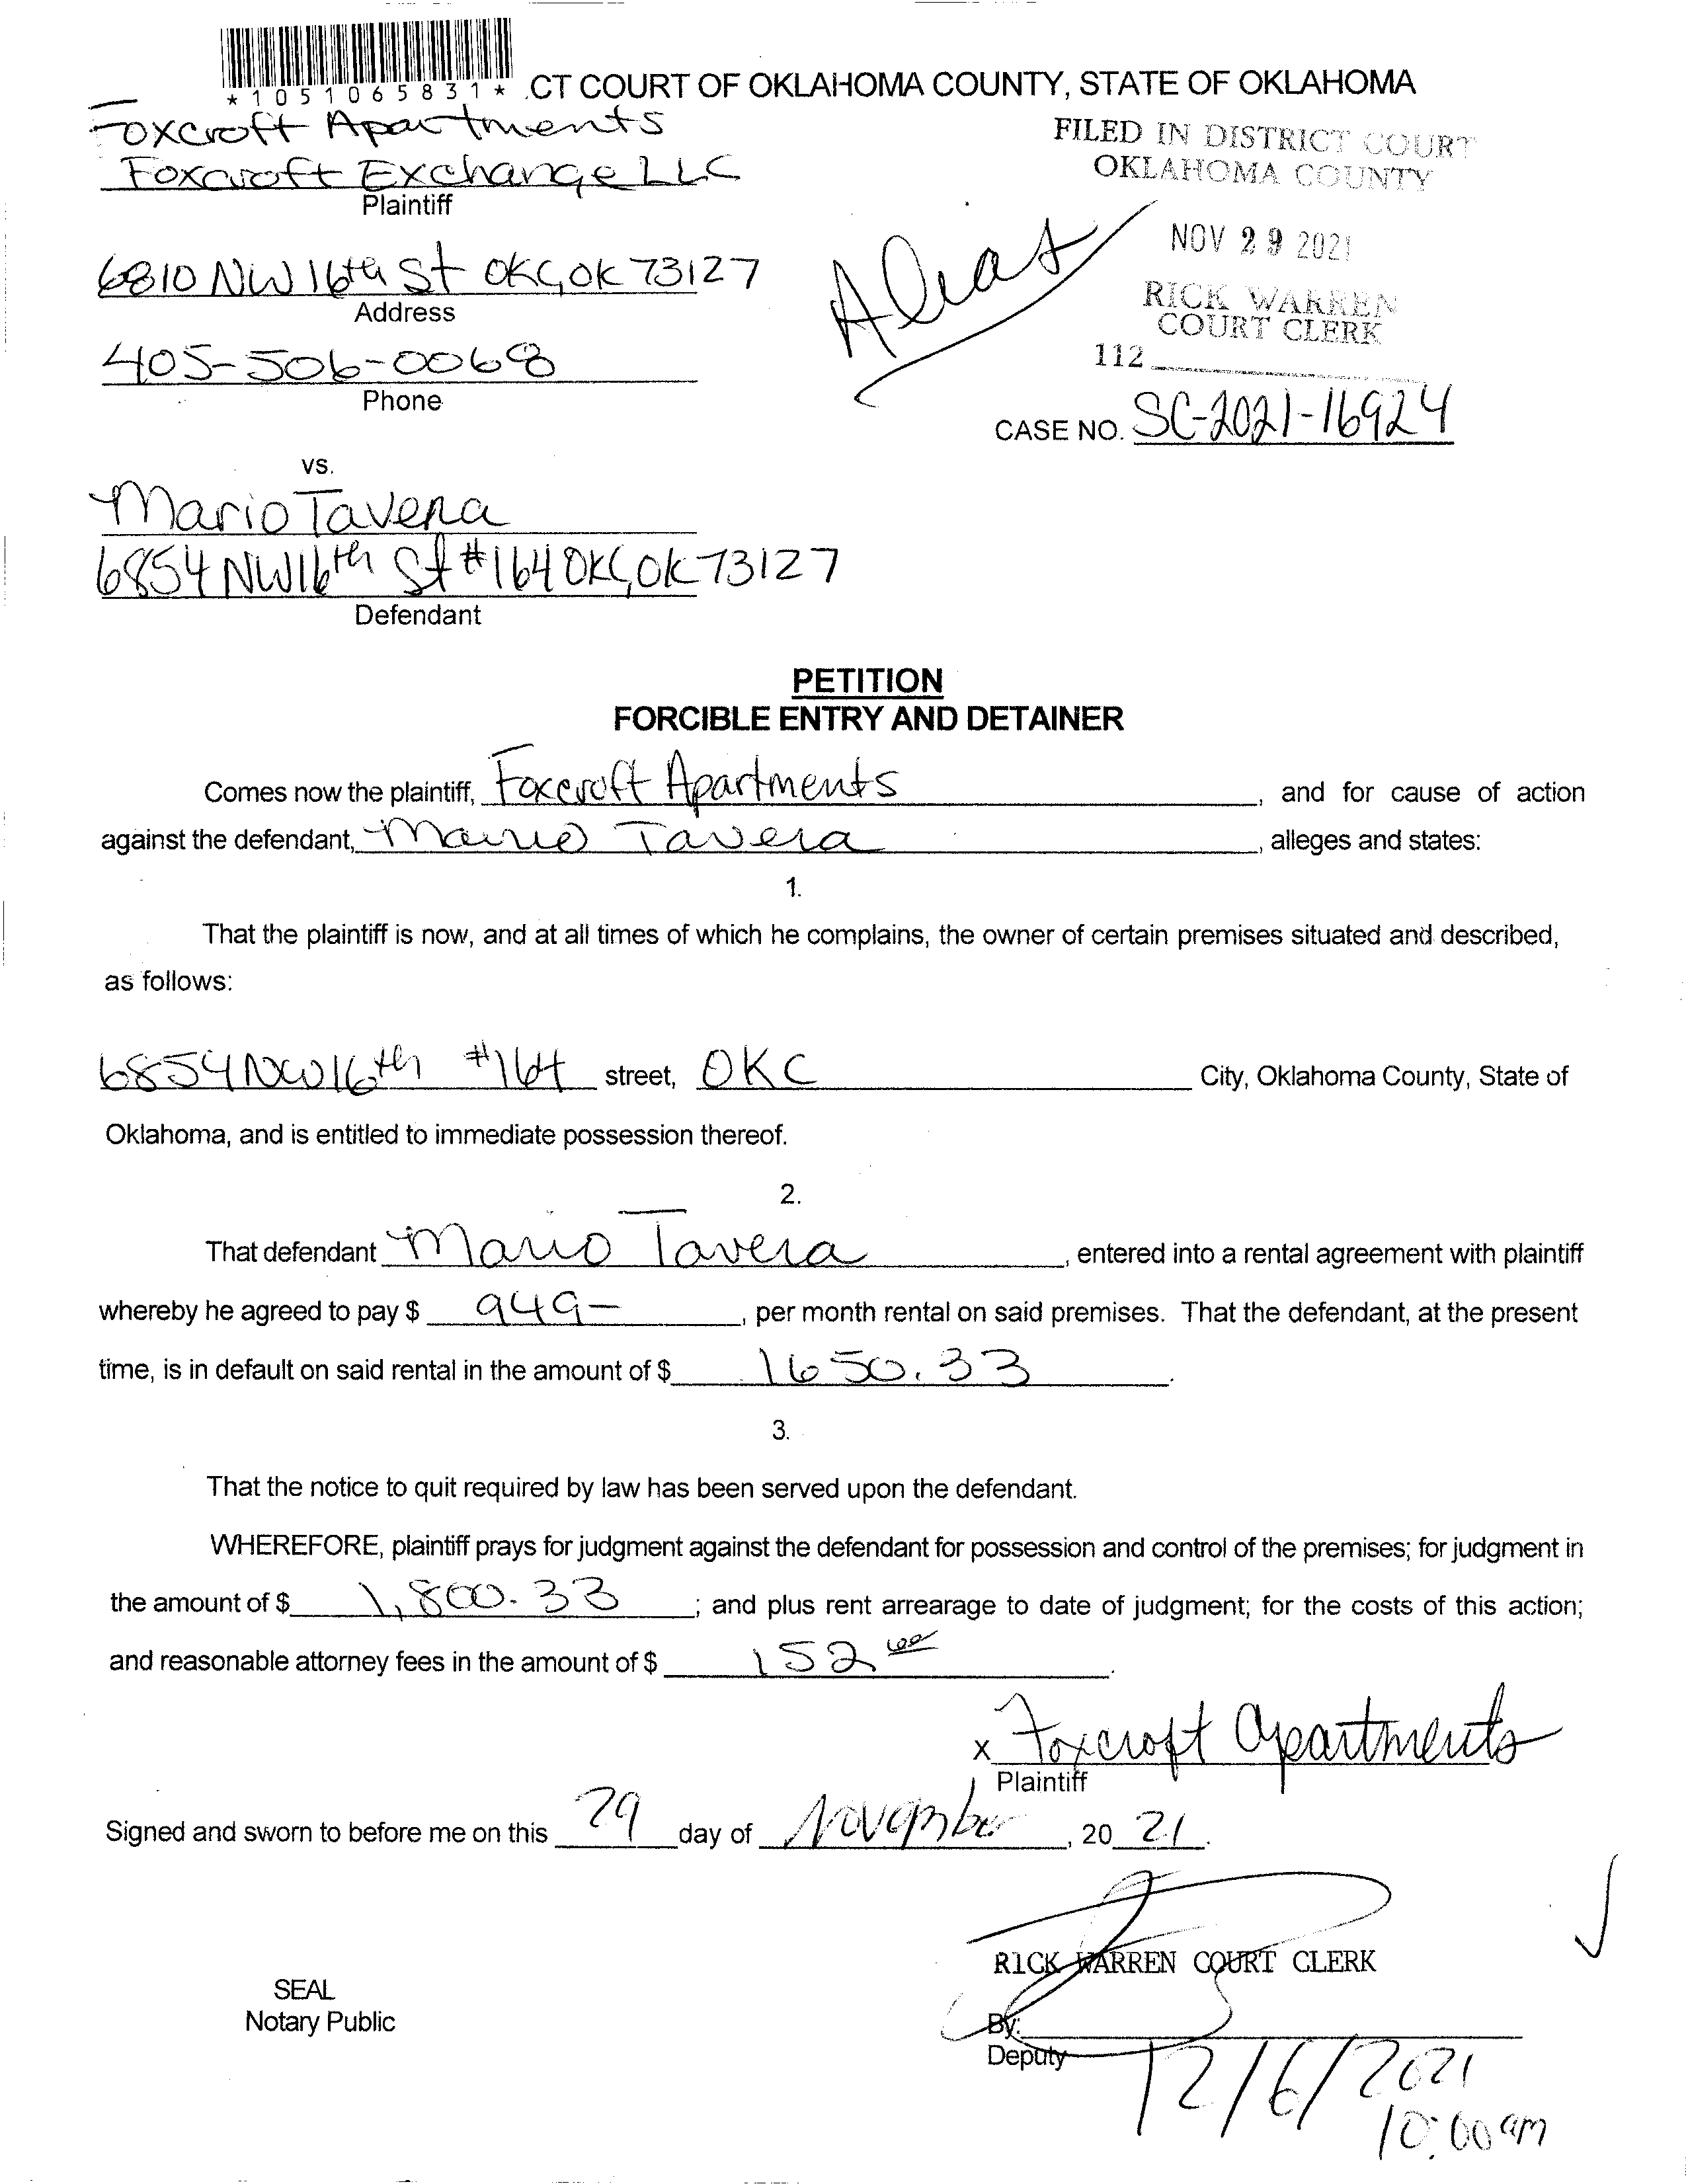 *1051065831* .CT COURT OF OKLAHOMA COUNTY, STATE OF OKLAHOMA
Foxcroft Apartments
Foxcroft Exchange LLC
Plaintiff
FILED IN DISTRICT COURT
OKLAHOMA COUNTY
6810 NW 16th St OKC, OK 73127
Address
Alias
NOV 29 2021
RICK WARREN
COURT CLERK
405-506-0068
Phone
112
CASE NO. SC-2021-16924
vs.
Mario Tavera
6854 NW 16th St #164 OKC, OK 73127
Defendant
PETITION
FORCIBLE ENTRY AND DETAINER
Comes now the plaintiff, Foxcroft Apartments, and for cause of action
against the defendant, Mario Tavera, alleges and states:
1.
That the plaintiff is now, and at all times of which he complains, the owner of certain premises situated and described,
as follows:
6854 NW 16th #164 street, OKC City, Oklahoma County, State of
Oklahoma, and is entitled to immediate possession thereof.
2.
That defendant Mario Tavera, entered into a rental agreement with plaintiff
whereby he agreed to pay $ 949-, per month rental on said premises. That the defendant, at the present
time, is in default on said rental in the amount of $ 1650.33.
3.
That the notice to quit required by law has been served upon the defendant.
WHEREFORE, plaintiff prays for judgment against the defendant for possession and control of the premises; for judgment in
the amount of $ 1,800.33; and plus rent arrearage to date of judgment; for the costs of this action;
and reasonable attorney fees in the amount of $ 152.00.
x Foxcroft Apartments
Plaintiff
Signed and sworn to before me on this 29 day of November, 20 21.
RICK WARREN COURT CLERK
SEAL
Notary Public
By:
Deputy
12/6/2021
10:00 am